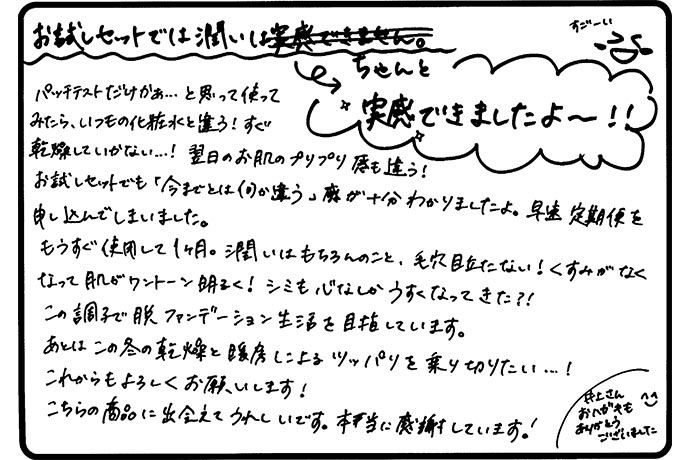 お試しセットでは潤いは実感できません。
ちゃんと
実感できましたよ〜!!
すごーい
パッチテストだけかぁ…と思って使って
みたら、いつもの化粧水と違う!すぐ
乾燥していかない…!翌日のお肌のプリプリ感も違う!
お試しセットでも「今までとは何か違う」感が十分わかりましたよ。早速定期便を
申し込んでしまいました。
もうすぐ使用して1ヶ月。潤いはもちろんのこと、毛穴目立たない!くすみがなく
なって肌がワントーン明るく!シミも心なしかうすくなってきた?!
この調子で脱ファンデーション生活を目指しています。
あとはこの冬の乾燥と暖房によるツッパリを乗り切りたい…!
これからもよろしくお願いします!
こちらの商品に出会えてうれしいです。本当に感謝しています!
井上さん
おハガキも
ありがとう
ございました